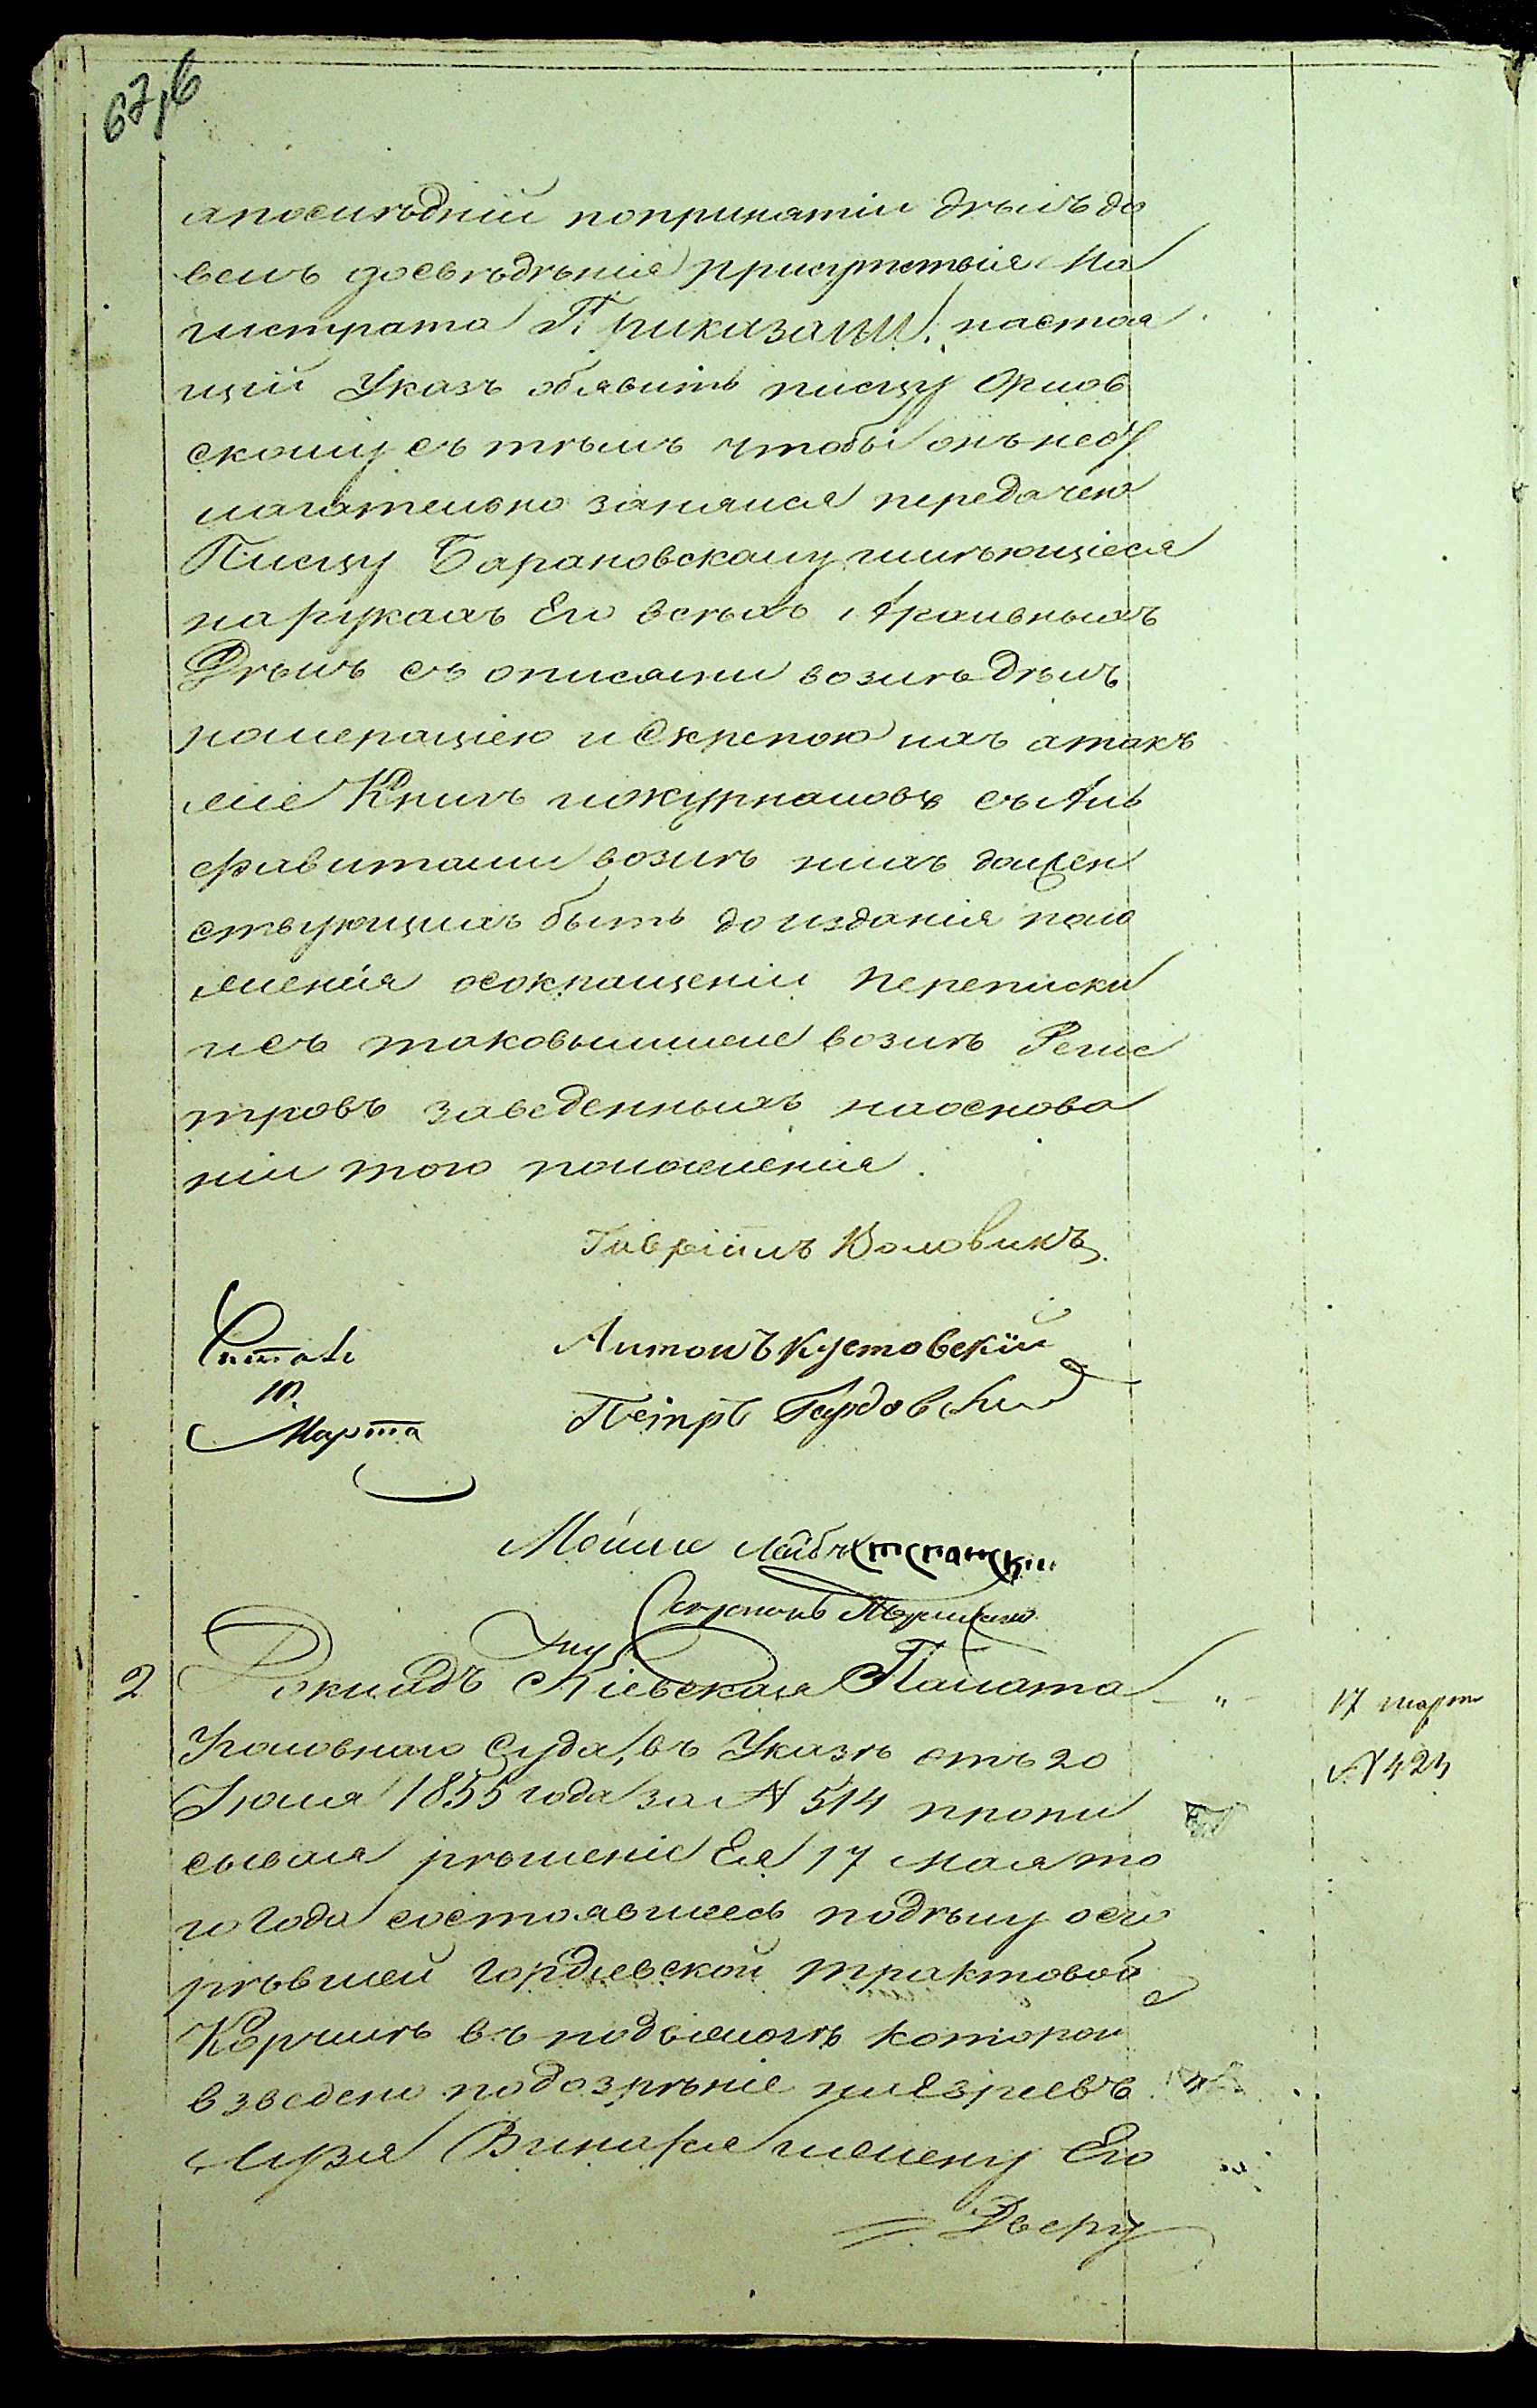 67,б
апослѣдній попринятіи дѣлъ до
велъ досвѣдѣнія присутствія Ма
гистрата Приказали: настоя
щій Указъ объявить писцу Орлов
скому съ тѣмъ чтобы онъ неот
лагательно занялся передачею
Писцу Барановскому имѣющіеся
на рукахъ Его всѣхъ Архивныхъ
Дѣлъ съ описями возлѣ дѣлъ
номераціею и Скрепою ихъ атакъ
же Книгъ и журналовъ съ Ал
фавитами возлѣ нихъ должен
ствующихъ быть до изданія поло
женія осокращеніи переписки
исъ таковымиже возлѣ Регис
тровъ заведенныхъ наоснова
ніи того положенія.
Гаврiилъ Воловикъ
Антонъ Кустовскій
Читалъ
10
Марта
Петръ Гурдовскій
Мошко Лейбъ
2 Докладъ Кіевская Палата " 17 март
Уголовнаго Суда, въ Указѣ отъ 20 № 421
Іюля 1855 года за № 514 пропи
сывая рѣшеніе Ея 17 мая то
го Года состоявшееся подѣлу осго
рѣвшей Гордіевской трактовой
Корчмѣ въ поджогѣ которой
взведено подозрѣніе на Еврѣевъ
Вингора и жену Его
Дверу